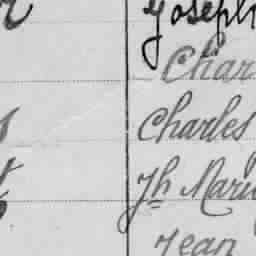 Joseph
Char
Charles
Jh Marie
Jean